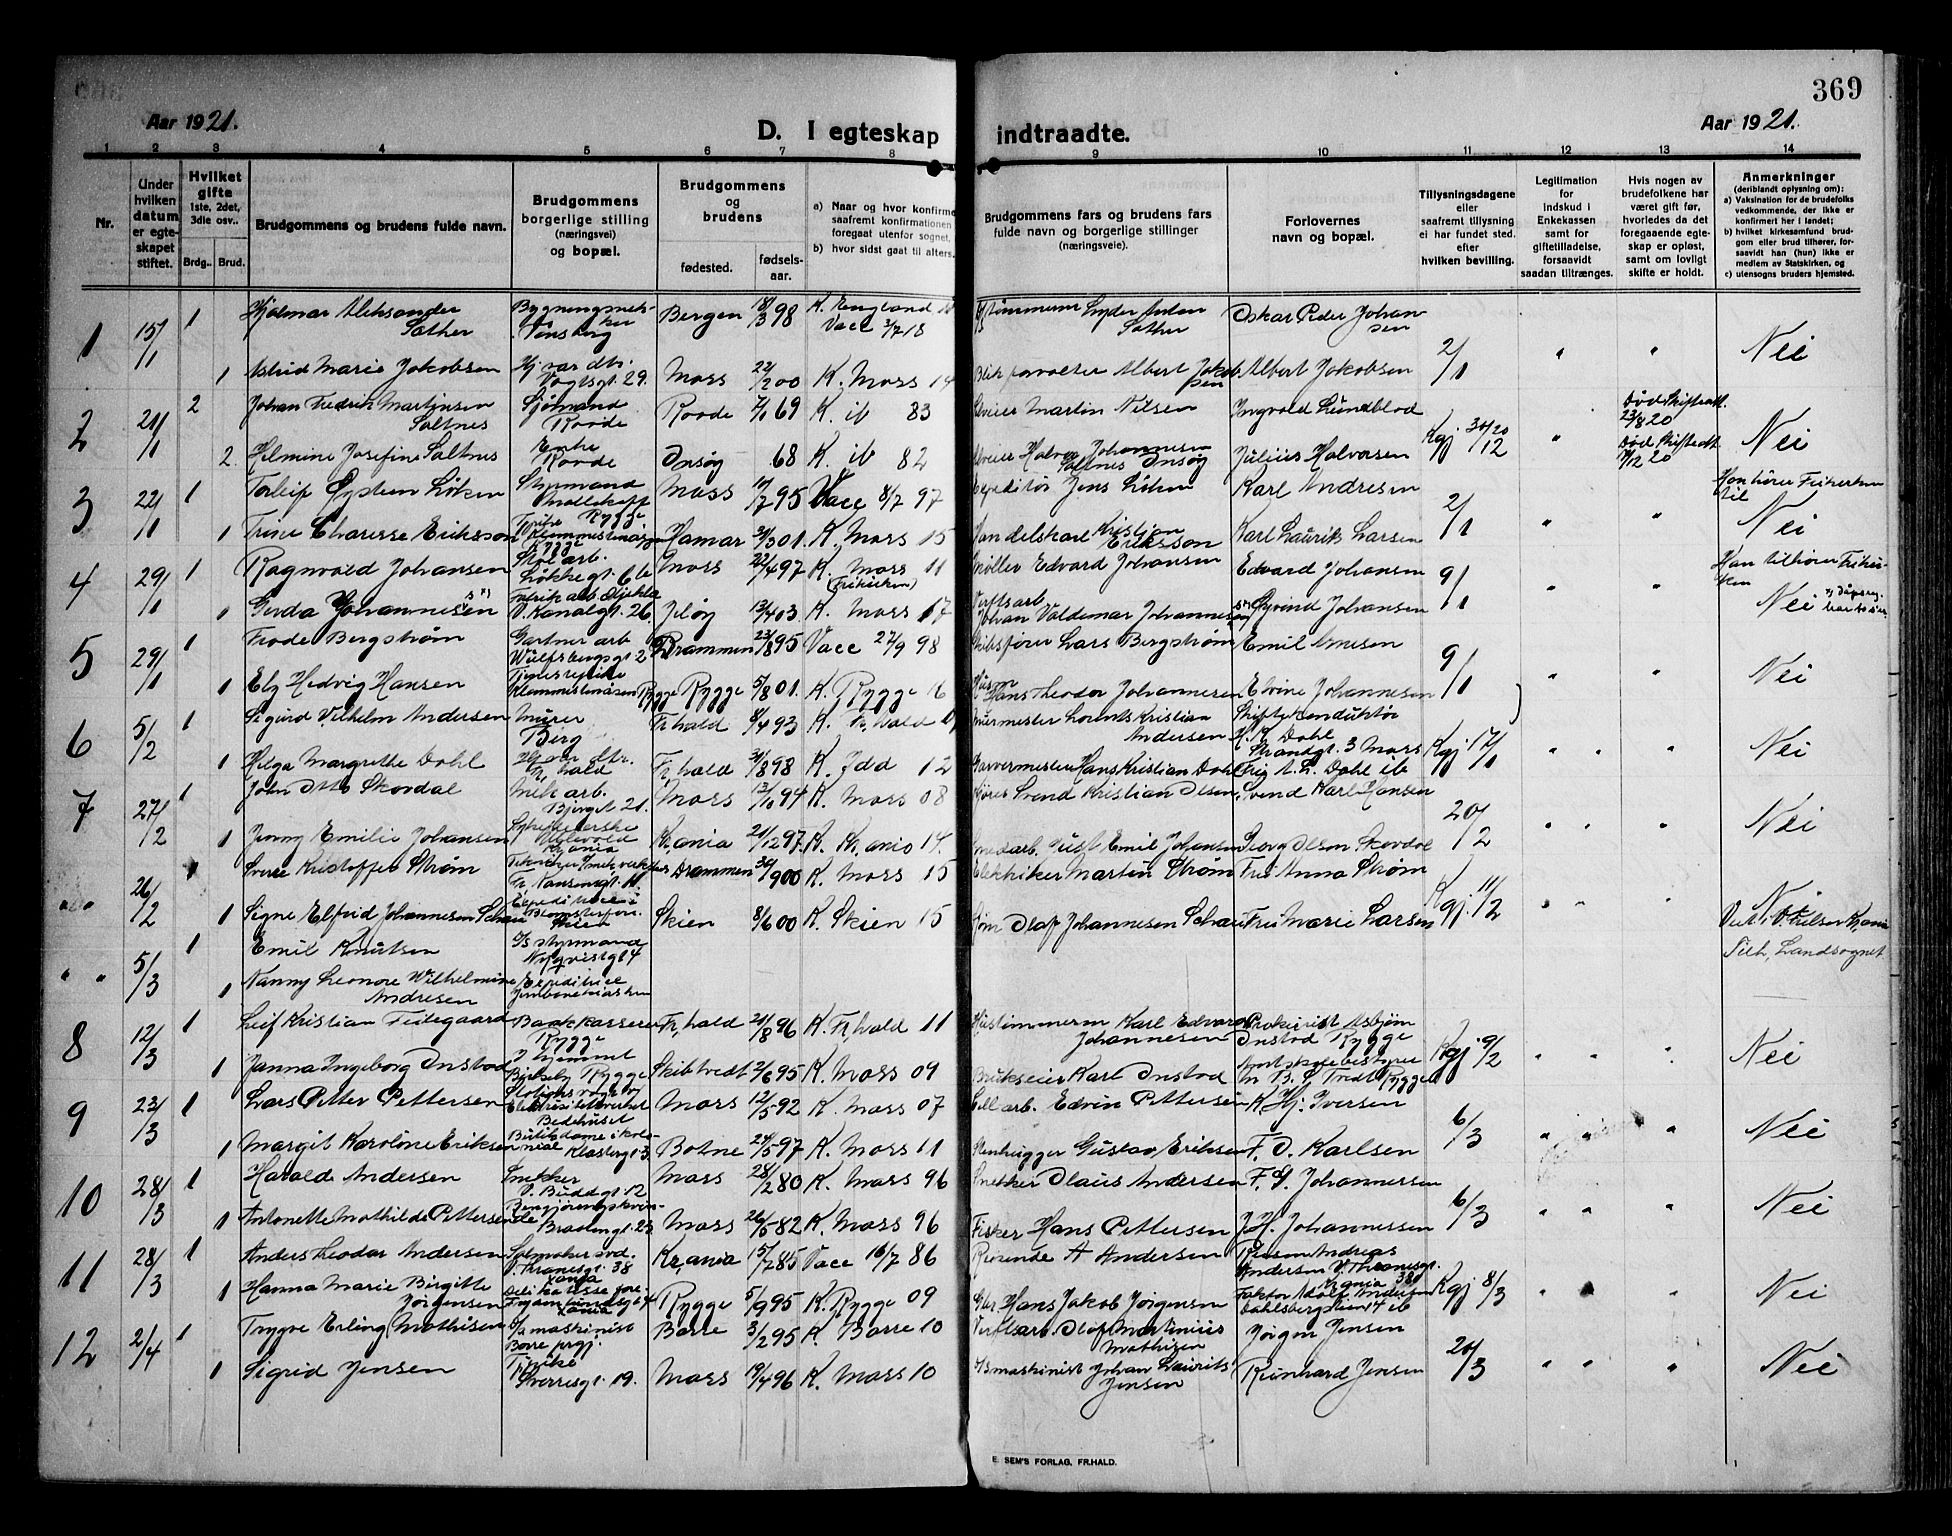 369
Aar 1921.
D. I egteskap indtraadte.
Aar 1921.
1 2 3 4 5 6 7 8 9 10 11 12 13 14
Nr.
Under hvilken datum er egteskapet stiftet.
Hvilket gifte 1ste, 2det, 3die osv..
Brdg.. Brud.
Brudgommens og brudens fulde navn.
Brudgommens borgerlige stilling (næringsvei) og bopæl.
Brudgommens og brudens
fødested.
fødselsaar.
a) Naar og hvor konfirme
saafremt konfirmationen
foregaat utenfor sognet,
b) hvor sidst gaat til alters.
Brudgommens fars og brudens fars
fulde navn og borgerlige stillinger
(næringsveie).
Forlovernes
navn og bopæl.
Tillysningsdagene
eller
saafremt tillysning
ei har fundet sted.
efter
hvilken bevilling.
Legitimation
for
indskud i
Enkekassen
samt for
giftetilladelse,
forsaavidt
saadan tiltrænges.
Hvis nogen av
brudefolkene har
været gift før,
hvorledes da det
foregaaende egteskap er opløst,
samt om lovligt
skifte er holdt.
Anmerkninger
(deriblandt oplysning om):
a) Vaksination for de brudefolks
vedkommende, der ikke er
konfirmert her i landet;
b) hvilket kirkesamfund brudgom eller brud tilhører, forsaavidt han (hun) ikke er
medlem av Statskirken, og
c) utensogns bruders hjemsted.
1 15/1 1 Hjalmar Aleksander Sather Tønsberg Bergen 18/3 98 K. England Vacc 3/7 18 Sather Oskar Peder Johansen
1 Astrid Marie Jakobsen Vogtsgt. 29. Moss 22/2 00 K. Moss 14 Albert Jakobsen Albert Jakobsen 2/1 " " Nei
2 21/1 2 Johan Fredrik Martinsen Saltnes Sjømand Raade 7/1 69 K. ib 83 Martin Nilsen Ingvald Lundblad Død Skifteatt. 23/8 20
2. Helmine Josefine Saltnes Enke Raade Onsøy 68 K. ib 82 Halvor Johannesen Saltnes Onsøy Julius Halvorsen Kgj 30/12 20 " Død Skifteatt 7/12 20 Nei
3 22/1 1 Torleif Øystein Løken Styrmand Moss 17/7 95 Vacc 8/7 97 Expeditør Jens Løken Karl Andresen Han hører Frikirken til
1 Trine Charesse Eriksson Rygge Hamar 31/3 01. K. Moss 15 Handelskarl Kristian Eriksson Karl Laurits Larsen 2/1 " " Nei
4 29/1 1 Ragnvald Johansen Løkkegt. 6 b Moss 22/4 97 K. Moss 11 (Frikirken) Møller Edvard Johansen Edvard Johansen Han tilhører Frikirken
1 Gerda Johannesen V. Kanalgt. 26 Jeløy 13/4 03 K. Moss 17 Verftsarb. Johan Valdemar Johannesen Øyvind Johansen 9/1 " " Nei
5 29/1 1 Frode Bergstrøm Gartnerarb Wulfsbergsgt 2 Drammen 23/8 95 Vacc 27/9 98 Skibsfører Lars Bergstrøm Emil Arnesen
1 Ely Hedvig Hansen Tjenestepike Klommestenåsen Rygge Rygge 5/8 01. K. Rygge 16 Husm Hans Theodor Johannesen Elvine Johannesen 9/1 " " Nei
6 5/2 1 Sigurd Vilhelm Andersen Murer Berg Fr.hald 8/4 93 K. Fr.hald Murmester Lorents Kristian Andersen Skiftekonduktør H. K. Dahl Strandgt. 3 Moss
1 Helga Margrethe Dahl Fr.hald Fr.hald 31/8 98 K. Idd 12 Garvermester Hans Kristian Dahl Frk A. L. Dahl ib Kgj 17/1 " " " Nei
7 27/2 1 John Otto Skovdal Mek arb. Bjerget 21. Moss 13/1 94 K. Moss 08 Kjører Svend Kristian Olsen Svend Karl Hansen
1 Jenny Emilie Johansen Sykepleierske Ullevold Kr.ania Kr.ania 21/12 97. K. Kr.ania 14. Gust Emil Johansen Georg Olsen Skovdal 20/2 " " " Nei
" " 26/2 1 Sverre Kristoffer Strøm Fr. Nansensgt. Drammen 30/9 00 K. Moss 15 Elektriker Martin Strøm Fru Anna Strøm
1 Signe Elfrid Johannesen Schau Blomsterforr. Skien Skien 8/6 00 K. Skien 15 Olaf Johannesen Schau Frk Marie Larsen Kgj. 11/2 " " " Nei
" " 5/3 1 Emil Knutsen Styrmand Nyqvistgt 4 Landsognet
1 Nanny Leonore Wilhelmine Andresen Expeditrice
8 12/3 1 Leif Kristian Feilegaard Bankkasserer Rygge Fr.hald 21/8 96 K. Fr.hald 11 Hustømmerm Karl Edvard Johannesen Prokurist Asbjørn Onstad Rygge
1 Janna Ingeborg Onstad I hjemmet Rygge Skibtvedt 2/6 95 K. Moss 09 Brukseier Karl Onstad Rygge Kgj 9/2 " " " Nei
9 23/3 1 Lars Petter Pettersen Elektrisitetsverket Bedehuset Moss 12/5 92 K. Moss 07 Cell arb. Edvin Pettersen K. Hj. Iversen
1 Margit Karoline Eriksen Butikdame i kolonial Klostergt 3 Botne 24/5 97 K. Moss 11 Stenhugger Gustav Eriksen F. D. Karlsen 6/3 " " " Nei
10 28/3 1 Harald Andersen Snekker V. Buddgt 12 Moss 28/2 80 K. Moss 96 Snekker Olaus Andersen F. G. Johannessen
1 Antonette Mathilde Pettersen Moss 26/5 82 K. Moss 96 Fisker Hans Pettersen J. H. Johannessen 6/3 " " " Nei
11 28/3 1 Anders Teodor Andersen Salmakersvd. V. Thranesgt. 38 Kr.ania 15/7 85 Vacc 16/7 86 Reisende A Andersen Andreas Andersen V. Thranesgt. 38
1 Hanna Marie Birgitte Jørgensen Rygge 5/9 95 K. Rygge 09 Gbr Hans Jakob Jørgensen Faktor Adolf Andersen Dahlsbergstien 14 ib Kgj 8/3 " " " Nei
12 2/4 1 Trygve Erling Mathisen maskinist Borre prgj. Borre 3/2 95 K. Borre 10 Verftsarb. Olaf Martinius Mathisen Jørgen Jensen
1 Sigrid Jensen Frøike Sverresgt. 19. Moss 19/4 96 K. Moss 10 maskinist Johan Laurits Jensen Reinhard Jensen 20/3 " " " Nei
E. SEM'S FORLAG, FR.HALD.